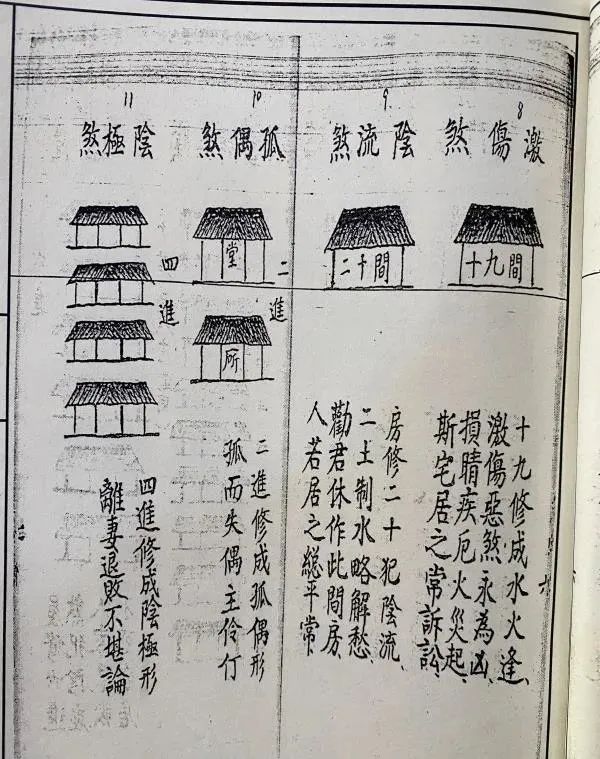 8
激傷煞
十九間
十九修成水火逢、
激傷惡煞永為凶、
損睛疾厄火災起、
斯宅居之常訴訟、
9
陰流煞
二十間
房修二十犯陰流、
二土制水略解愁、
勸君休作此間房、
人若居之總平常
10
孤偶煞
二進
堂
所
二進修成孤偶形
孤而失偶主伶仃
11
陰極煞
四進
四進修成陰極形
離妻退敗不堪論